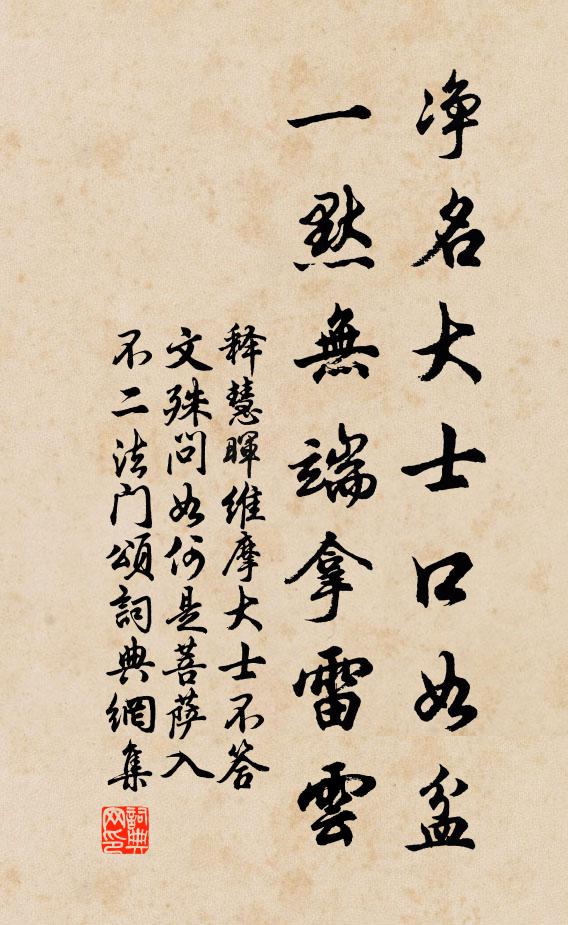 净名大士口如盆
一默無端拿雷雲
释慧暉维摩大士不答
文殊問如何是菩萨入
不二法门頌詞典網集
詞典網印